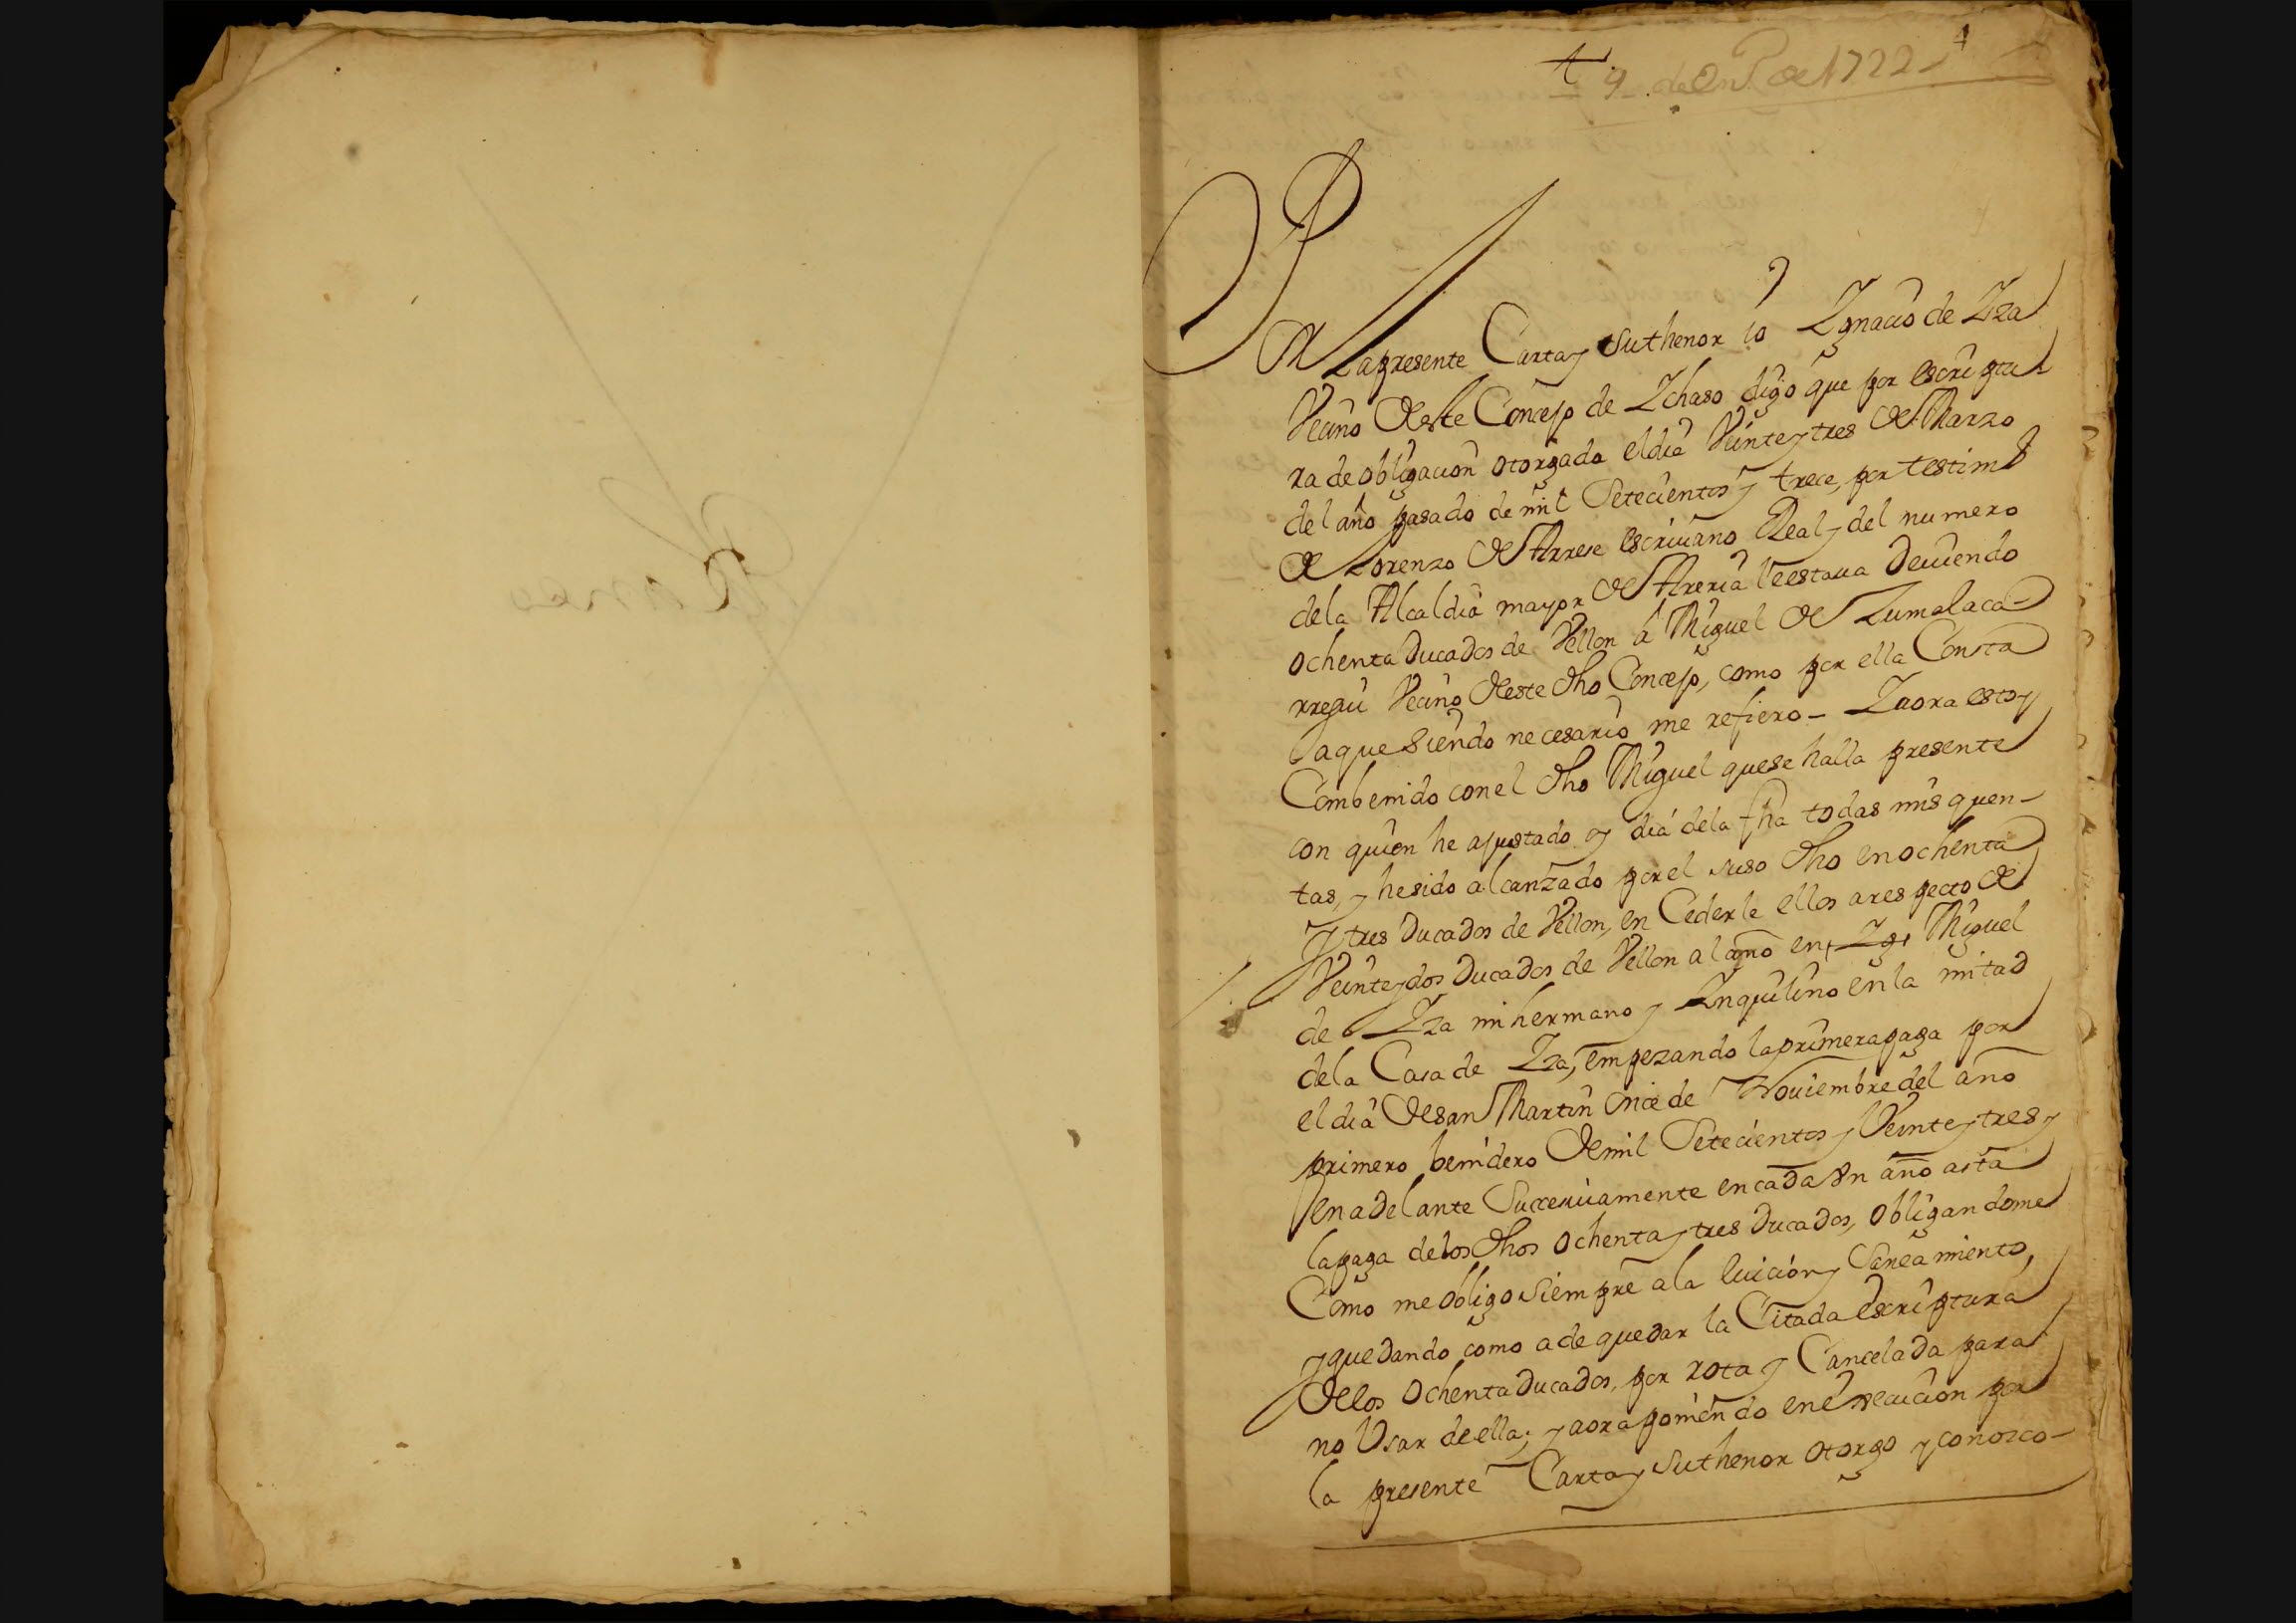 9 de en.º de 1722
1
Por
La presente Carta y suthenor io Ygnacio de Yza
Vecino deste Concejo de Ychaso digo que por escriptu-
ra de obligacion otorgada el dia Veinte y tres de Marzo
del año pasado de mil Setecientos y trece, por testimº
de Lorenzo de Arrese escriuano Real y del numero
dela Alcaldia mayor de Areria le estaua deuiendo
ochenta Ducados de Vellon á Miguel de Zumalaca-
rregui Vecino deste dho Concejo, como por ella Consta
a que siendo necesario me refiero - Y aora estoy
Combenido con el dho Miguel que se halla presente
con quien he ajustado oy dia dela fha todas mis quen-
tas, y he sido alcanzado por el suso dho en ochenta
Y tres Ducados de Vellon, en Cederle ellos a respecto de
Veinte y dos Ducados de Vellon al año en Miguel
de Yza mi hermano y Ynquilino en la mitad
dela Casa de Yza, empezando la primera paga por
el dia de san Martin once de Nouiembre del año
primero benidero de mil Setecientos y Veinte y tres y
en adelante Sucesiuamente en cada Vn año asta
la paga delos dhos ochenta y tres Ducados, obligandome
Como me obligo siempre ala luicion y Saneamiento,
y quedando como a de quedar la Citada Escriptura
delos ochenta Ducados, por rota y Cancelada para
no Vsar de ella; y aora poniendo en execucion por
la presente Carta y suthenor otorgo y conosco-